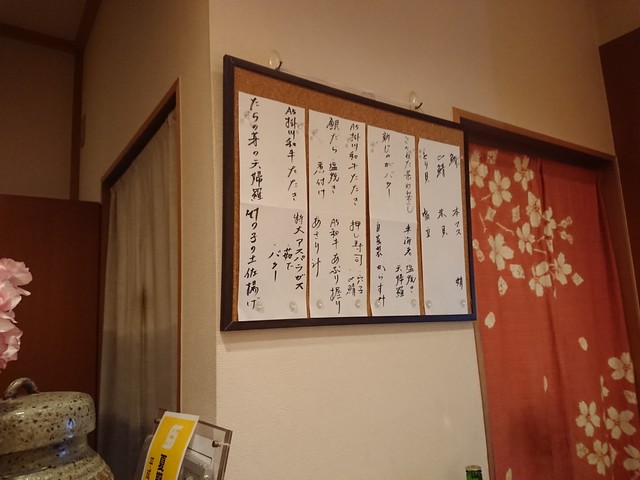 本マス
〆鯖
とり貝
このわた茶わん蒸し
車海老 塩焼き
天婦羅
新じゃがバター
自家製 からすみ
A5掛川和牛たたき
押し寿司 穴子
〆鯖
銀だら 塩焼き
煮付け
A5和牛あぶり握り
あさり汁
A5掛川和牛たたき
特大アスパラガス
茹で
バター
たらの芽の天婦羅
竹の子の土佐揚げ